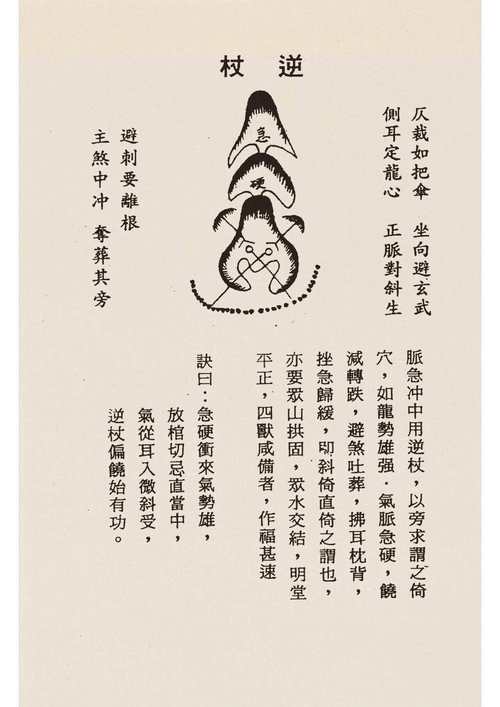 逆杖
仄裁如把傘　坐向避玄武
側耳定龍心　正脈對斜生
急
硬
避刺要離根
主煞中冲　奪葬其旁
脈急冲中用逆杖，以旁求謂之倚
穴，如龍勢雄强．氣脈急硬，饒
減轉跌，避煞吐葬，拂耳枕背，
挫急歸緩，卽斜倚直倚之謂也，
亦要眾山拱固，眾水交結，明堂
平正，四獸咸備者，作福甚速
訣曰：急硬衝來氣勢雄，
放棺切忌直當中，
氣從耳入微斜受，
逆杖偏饒始有功。